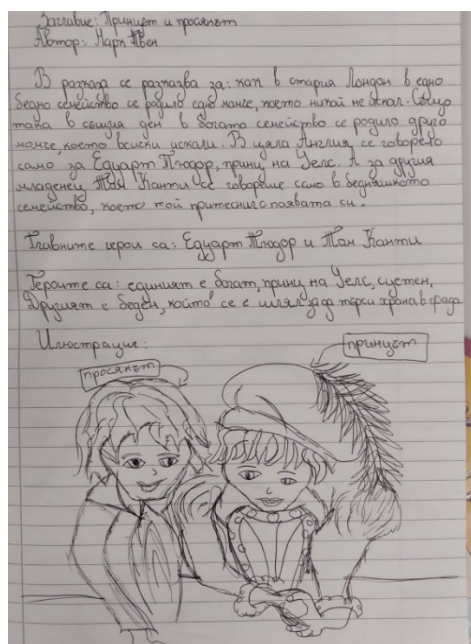 Заглавие: Принцът и просякът
Автор: Марк Твен
В разказа се разказва за: как в стария Лондон в едно
бедно семейство се родило едно момче, което никой не искал. Също
така в същия ден в богато семейство се родило друго
момче, което всиски искали. В цяла Англия се говорело
само за Едуарт Тюдор, принц на Уелс. А за другия
младенец Том Канти се говореше само в бедняшкото
семейство, което той притеснил с появата си.
Главните герои са: Едуарт Тюдор и Том Канти
Героите са: единият е богат, принц на Уелс, суетен,
Другият е беден, който се е шлял за да търси храна в града
Илюстрация:
принцът
просякът